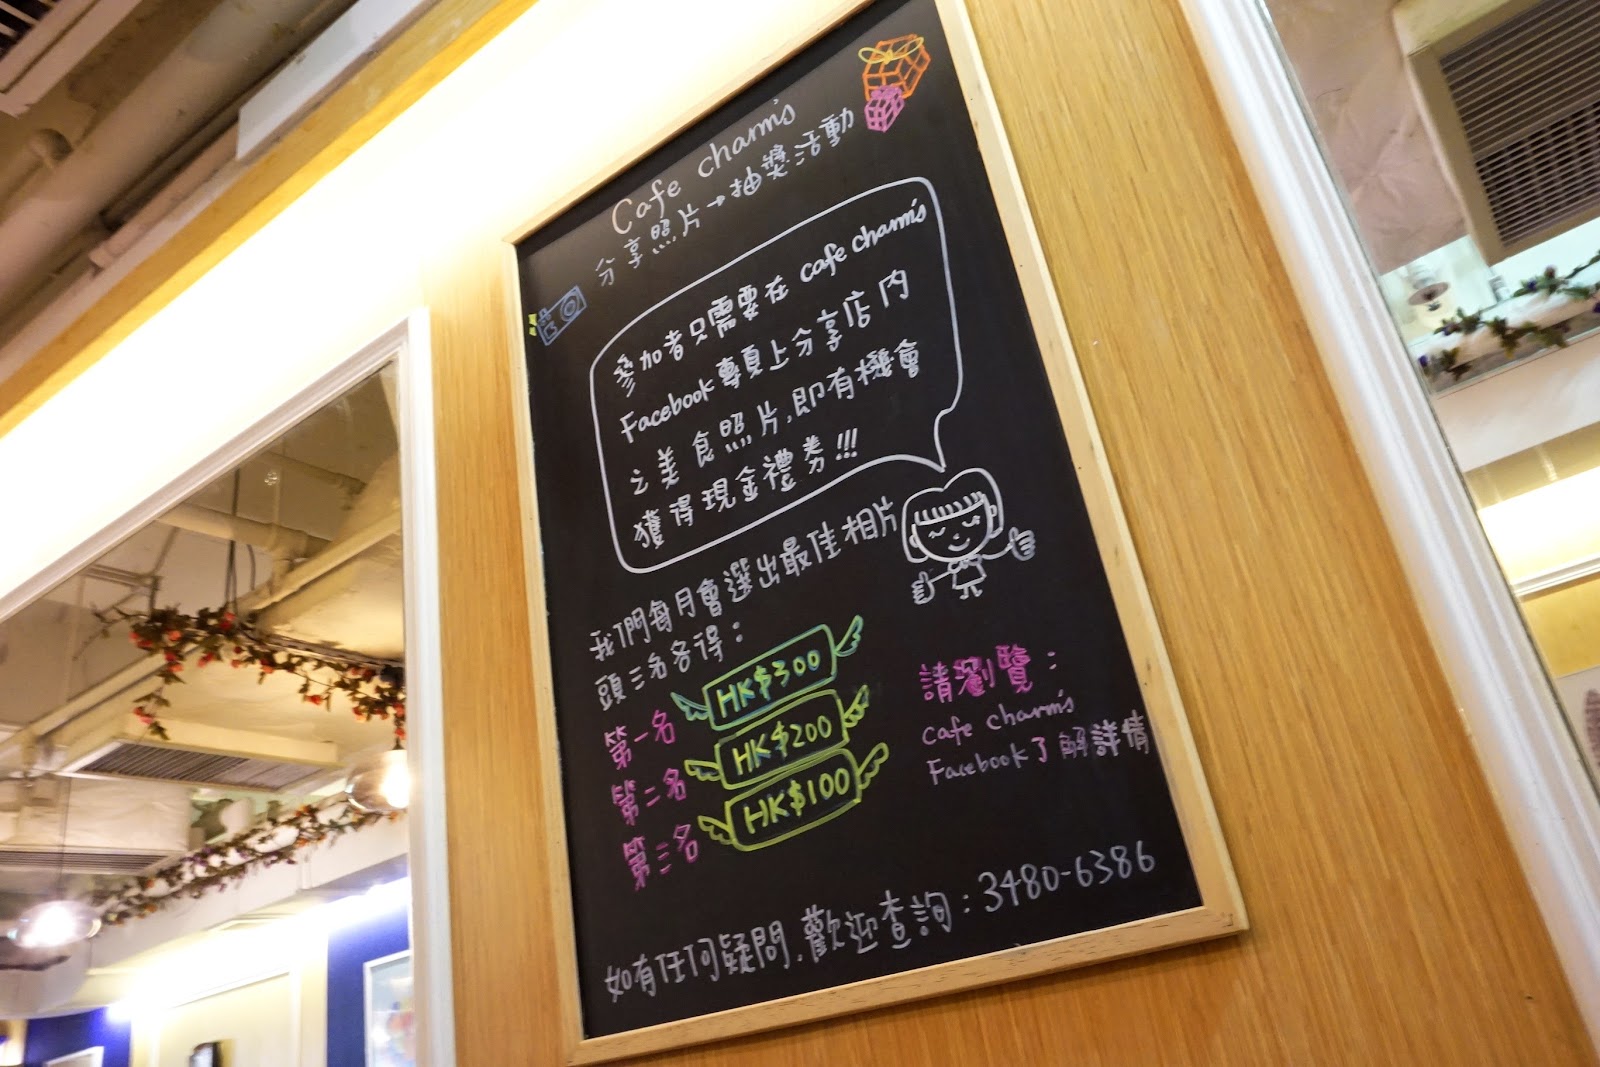 Cafe charm's
分享照片→抽獎活動
參加者只需要在 cafe charm's
Facebook 專頁上分享店內
之美食照片,即有機會
獲得現金禮券!!!
我們每月會選出最佳相片
頭三名各得:
第一名 HK$300
第二名 HK$200
第三名 HK$100
請瀏覽:
cafe charm's
Facebook 了解詳情
如有任何疑問,歡迎查詢:3480-6386